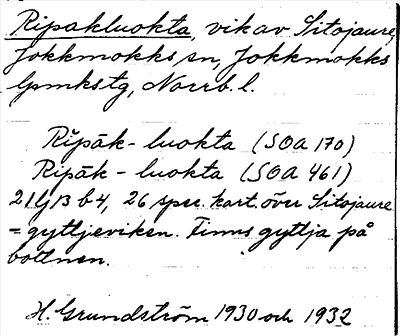 Ripakluokta, vik av Sitojaure,
Jokkmokks sn, Jokkmokks
lpmkstg, Norrb. l.
Řipāk - luokta (SOA 170)
Ripāk - luokta (SOA 461)
26 spec. kart. över Sitojaure
= gyttjeviken. Finns gyttja på
bottnen.
H. Grundström 1930 och 1932